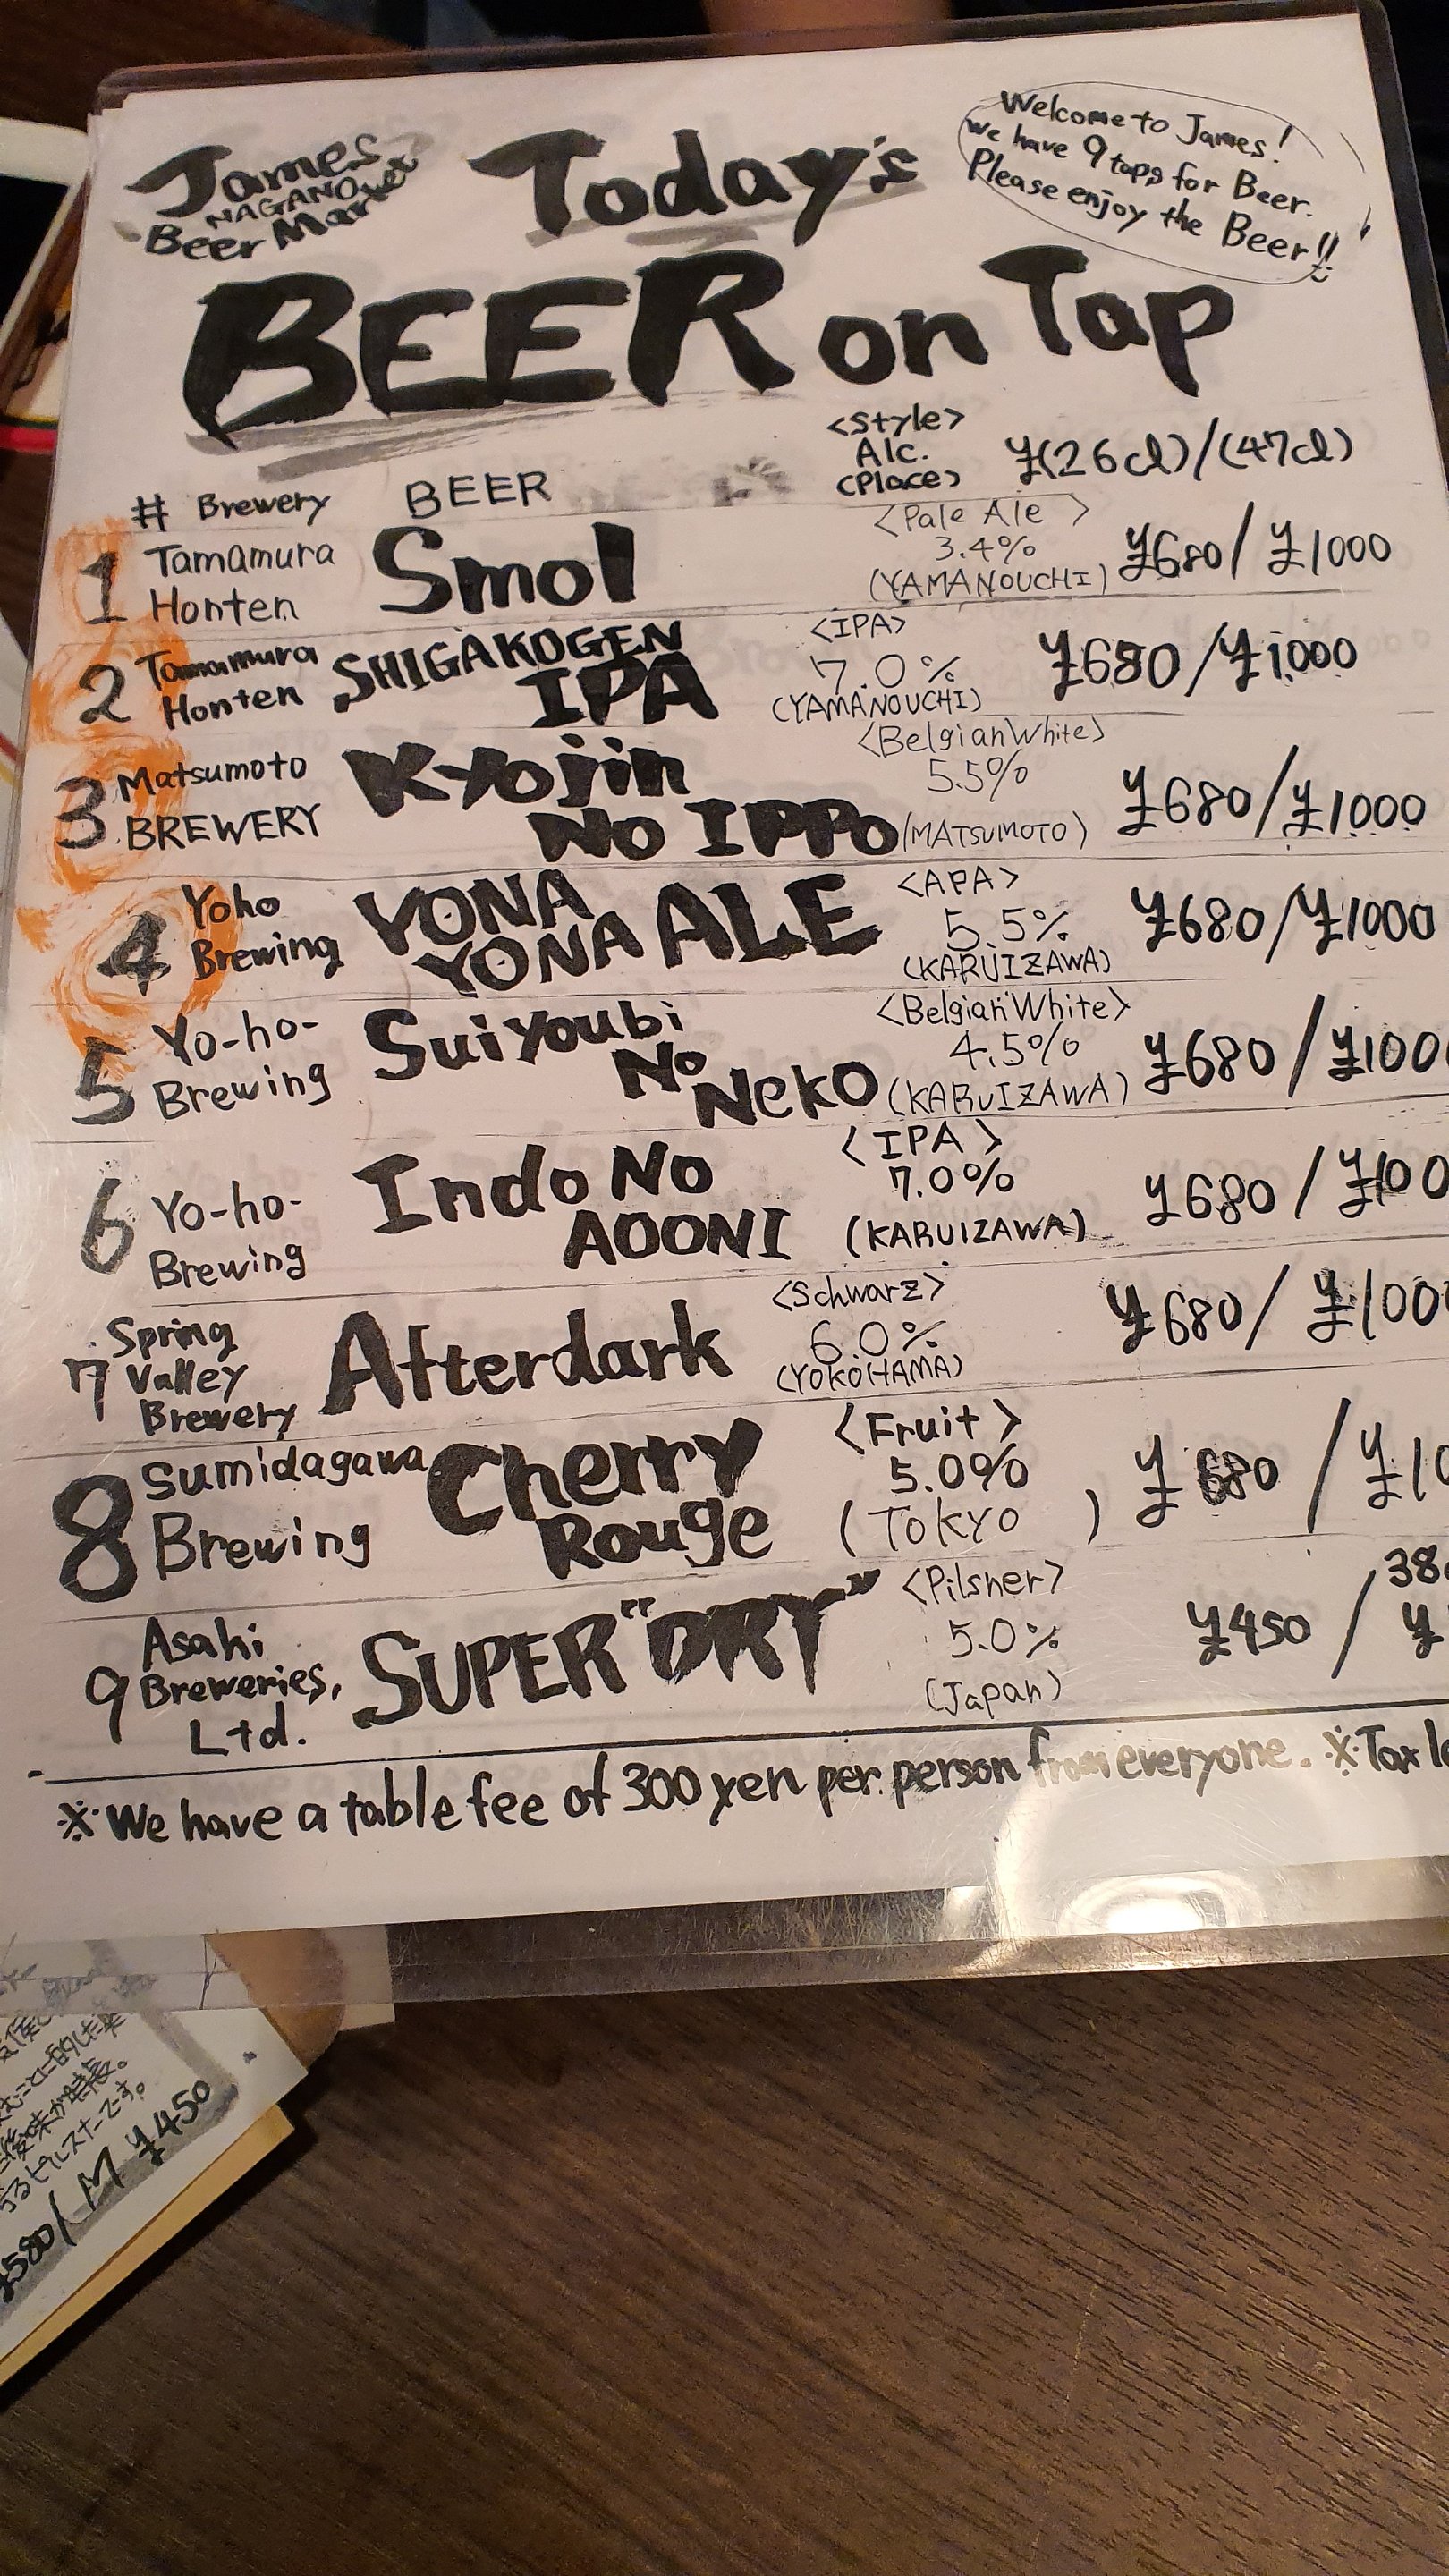 James
NAGANO
Beer Market
Today's
BEER on Tap
Welcome to James!
We have 9 taps for Beer.
Please enjoy the Beer!!
# Brewery BEER <Style> Alc. (Place) ¥(26cl)/(47cl)
1 Tamamura Honten Smol <Pale Ale> 3.4% (YAMANOUCHI) ¥680/¥1000
2 Tamamura Honten SHIGAKOGEN IPA <IPA> 7.0% (YAMANOUCHI) ¥680/¥1000
3 Matsumoto BREWERY Kyojin No IPPo <Belgian White> 5.5% (MATSUMOTO) ¥680/¥1000
4 Yoho Brewing YONA YONA ALE <APA> 5.5% (KARUIZAWA) ¥680/¥1000
5 Yo-ho- Brewing Suiyoubi No Neko <Belgian White> 4.5% (KARUIZAWA) ¥680/¥100
6 Yo-ho- Brewing Indo No AOONI <IPA> 7.0% (KARUIZAWA) ¥680/¥100
7 Spring Valley Brewery Afterdark <Schwarz> 6.0% (YOKOHAMA) ¥680/¥100
8 Sumidagawa Brewing Cherry Rouge <Fruit> 5.0% (TOKYO) ¥680/¥10
9 Asahi Breweries, Ltd. SUPER "DRY" <Pilsner> 5.0% (Japan) ¥450/ 38 ¥
※We have a table fee of 300 yen per person from everyone. ※Tax
¥580/M ¥450